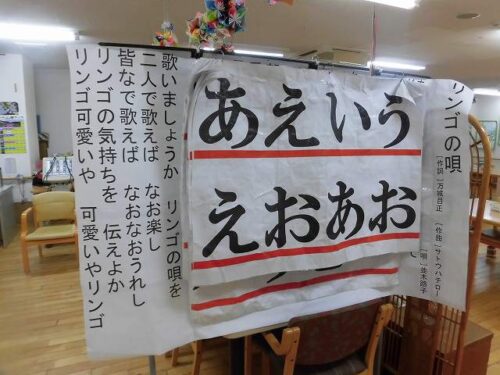 リンゴの唄
〔作詞〕万城目正 〔作曲〕サトウハチロー
〔唄〕並木路子
あえいう
えおあお
歌いましょうか リンゴの唄を
二人で歌えば なお楽し
皆なで歌えば なおなおうれし
リンゴの気持ちを 伝えよか
リンゴ可愛いや 可愛いやリンゴ